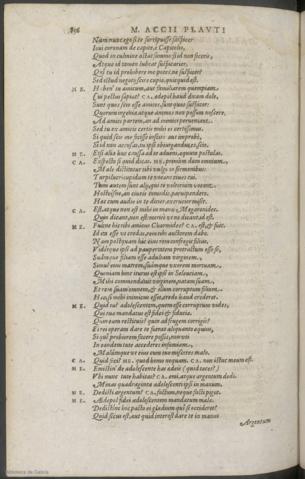 856 M. ACCII PLAVTI
Nam nunc ego si te surripuisse suspicer
Ioui coronam de capite è Capitolio,
Quod in culmine astat summo: si id non feceris,
Atque id tamen lubeat suspicarier,
Qui tu id prohibere me potes, ne suspicer?
Sed istud negoti scire cupio, quicquid est.
ME. Haben' tu amicum, aut familiarem quempiam,
Cui pectus sapiat? CA. ædepol haud dicam dolo,
Sunt quos scio esse amicos, sunt quos suspicor:
Quorum ingenia atque animos non possum noscere,
Ad amici partem, an ad inimici perueniant.
Sed tu ex amicis certis mihi es certissimus.
Si quid scis me fecisse inscitè aut improbè,
Si id non accusas, tu ipse obiurgandus es. scio,
ME. Et si alia huc causa ad te adueni, æquum postulas.
CA. Expecto si quid dicas. ME. primùm dum omnium,
Malè dictitatur tibi vulgo in sermonibus:
Turpilucricupidum te vocant ciues tui.
Tum autem sunt alij, qui te volturium vocant:
Hostesne, an ciueis comedis, parui pendere.
Hæc cum audio in te dicier, excrucior miser.
CA. Est, atque non est mihi in manu, Megaronides.
Quin dicant, non est: meritò vt ne dicant, id est.
ME. Fuitne hic tibi amicus Charmides? CA. est, & fuit.
Id ita esse vt credas, rem tibi auctorem dabo.
Nam postquam hic eius rem confregit filius,
Videtque ipsi ad paupertatem protractum esse se,
Suamque filiam esse adultam virginem,
Simul eius matrem, suamque vxorem mortuam,
Quoniam hinc iturus est ipsus in Seleuciam,
Mihi commendauit virginem, natam suam,
Et rem suam omnem, & illum corruptum filium.
Hæc, si mihi inimicus esset, credo haud crederet.
ME. Quid tu? adolescentem, quem esse corruptum vides,
Qui tuæ mandatus est fidei & fiduciæ,
Quin eum restituis? quin ad frugem corrigis?
Ei rei operam dare te fuerat aliquanto æquius,
Si qui probiorem facere posses, non vti
In eandem tute accederes infamiam,
Malúmque vt eius cum tuo misceres malo.
CA. Quid feci? ME. quod homo nequam. CA. non istuc meum est.
ME. Emistin' de adolescente has ædeis? (quid taces?)
Vbi nunc tute habitas? CA. emi, atque argentum dedi,
Minas quadraginta adolescenti ipsi in manum.
ME. Dedisti argentum? CA. factum, neque facti piget.
ME. Ædepol fidei adolescentem mandatum malæ.
Dedistine hoc pacto ei gladium qui se occideret?
Quid secus est, aut quid interest dare te in manus
Argentum
Biblioteca de Galicia